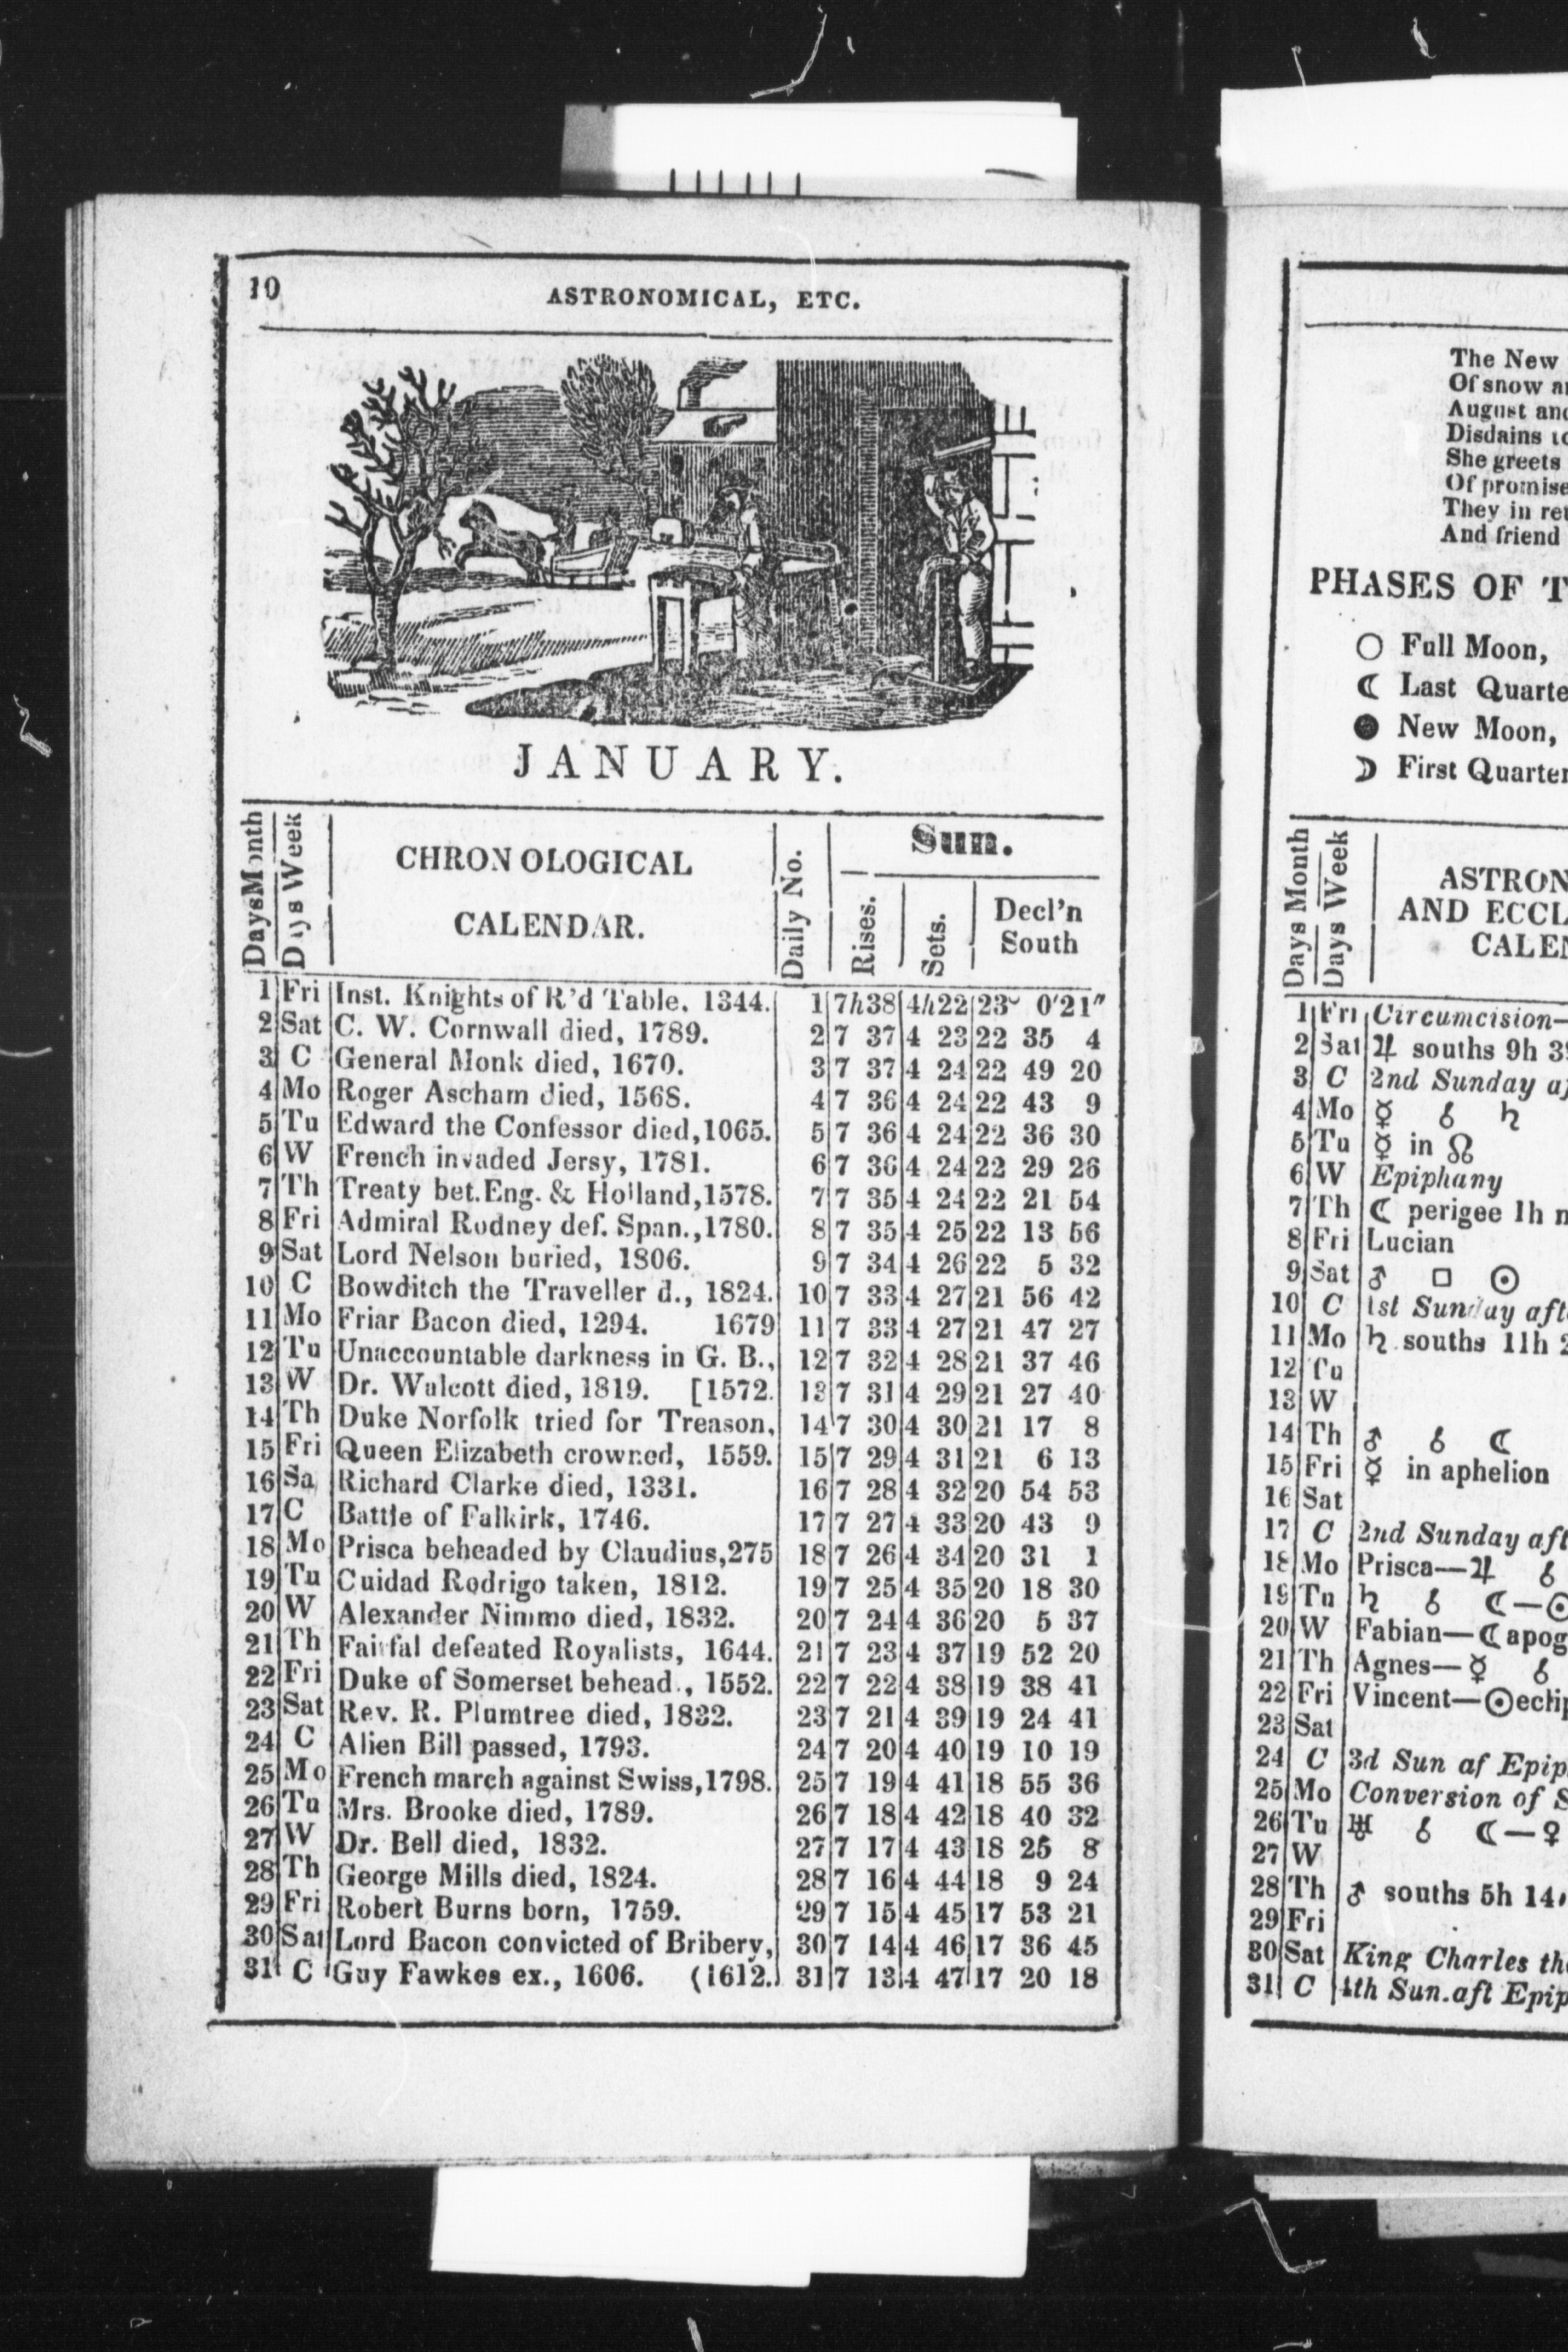 10
ASTRONOMICAL, ETC.
JANUARY.
Days Month
Days Week
CHRONOLOGICAL
CALENDAR.
Daily No.
Sun.
Rises.
Sets.
Decl'n
South
1 Fri Inst. Knights of R'd Table. 1344. 1 7h38 4h22 23° 0'21"
2 Sat C. W. Cornwall died, 1789. 2 7 37 4 23 22 35 4
3 C General Monk died, 1670. 3 7 37 4 24 22 49 20
4 Mo Roger Ascham died, 1568. 4 7 36 4 24 22 43 9
5 Tu Edward the Confessor died, 1065. 5 7 36 4 24 22 36 30
6 W French invaded Jersy, 1781. 6 7 36 4 24 22 29 26
7 Th Treaty bet. Eng. & Holland, 1578. 7 7 35 4 24 22 21 54
8 Fri Admiral Rodney def. Span., 1780. 8 7 35 4 25 22 13 56
9 Sat Lord Nelson buried, 1806. 9 7 34 4 26 22 5 32
10 C Bowditch the Traveller d., 1824. 10 7 33 4 27 21 56 42
11 Mo Friar Bacon died, 1294. 1679 11 7 33 4 27 21 47 27
12 Tu Unaccountable darkness in G. B., 12 7 32 4 28 21 37 46
13 W Dr. Walcott died, 1819. [1572. 13 7 31 4 29 21 27 40
14 Th Duke Norfolk tried for Treason, 14 7 30 4 30 21 17 8
15 Fri Queen Elizabeth crowned, 1559. 15 7 29 4 31 21 6 13
16 Sa Richard Clarke died, 1331. 16 7 28 4 32 20 54 53
17 C Battle of Falkirk, 1746. 17 7 27 4 33 20 43 9
18 Mo Prisca beheaded by Claudius, 275 18 7 26 4 34 20 31 1
19 Tu Cuidad Rodrigo taken, 1812. 19 7 25 4 35 20 18 30
20 W Alexander Nimmo died, 1832. 20 7 24 4 36 20 5 37
21 Th Fairfal defeated Royalists, 1644. 21 7 23 4 37 19 52 20
22 Fri Duke of Somerset behead., 1552. 22 7 22 4 38 19 38 41
23 Sat Rev. R. Plumtree died, 1832. 23 7 21 4 39 19 24 41
24 C Alien Bill passed, 1793. 24 7 20 4 40 19 10 19
25 Mo French march against Swiss, 1798. 25 7 19 4 41 18 55 36
26 Tu Mrs. Brooke died, 1789. 26 7 18 4 42 18 40 32
27 W Dr. Bell died, 1832. 27 7 17 4 43 18 25 8
28 Th George Mills died, 1824. 28 7 16 4 44 18 9 24
29 Fri Robert Burns born, 1759. 29 7 15 4 45 17 53 21
30 Sat Lord Bacon convicted of Bribery, 30 7 14 4 46 17 36 45
31 C Guy Fawkes ex., 1606. (1612. 31 7 13 4 47 17 20 18
The New
Of snow
August
Disdains
She greets
Of promise
They in
And friend
PHASES OF
○ Full Moon,
☾ Last
● New Moon,
☽ First Quarter
Days Month
Days Week
AND
1 Fri Circumcision—
2 Sat ♃ souths 9h
3 C 2nd Sunday
4 Mo ☿ ☌ ♄
5 Tu ☿ in ☊
6 W Epiphany
7 Th ☾ perigee 1h
8 Fri Lucian
9 Sat ♂ □ ☉
10 C 1st Sunday
11 Mo ♄ souths 11h
12 Tu
13 W
14 Th ♂ ☌ ☾
15 Fri ☿ in aphelion
16 Sat
17 C 2nd Sunday
18 Mo Prisca—♃ ☌
19 Tu ♄ ☌ ☾—☉
20 W Fabian—☾
21 Th Agnes—☿ ☌
22 Fri Vincent—☉
23 Sat
24 C 3d Sun af
25 Mo Conversion of
26 Tu ♅ ☌ ☾—♀
27 W
28 Th ♂ souths 5h
29 Fri
30 Sat King Charles
31 C 4th Sun. aft